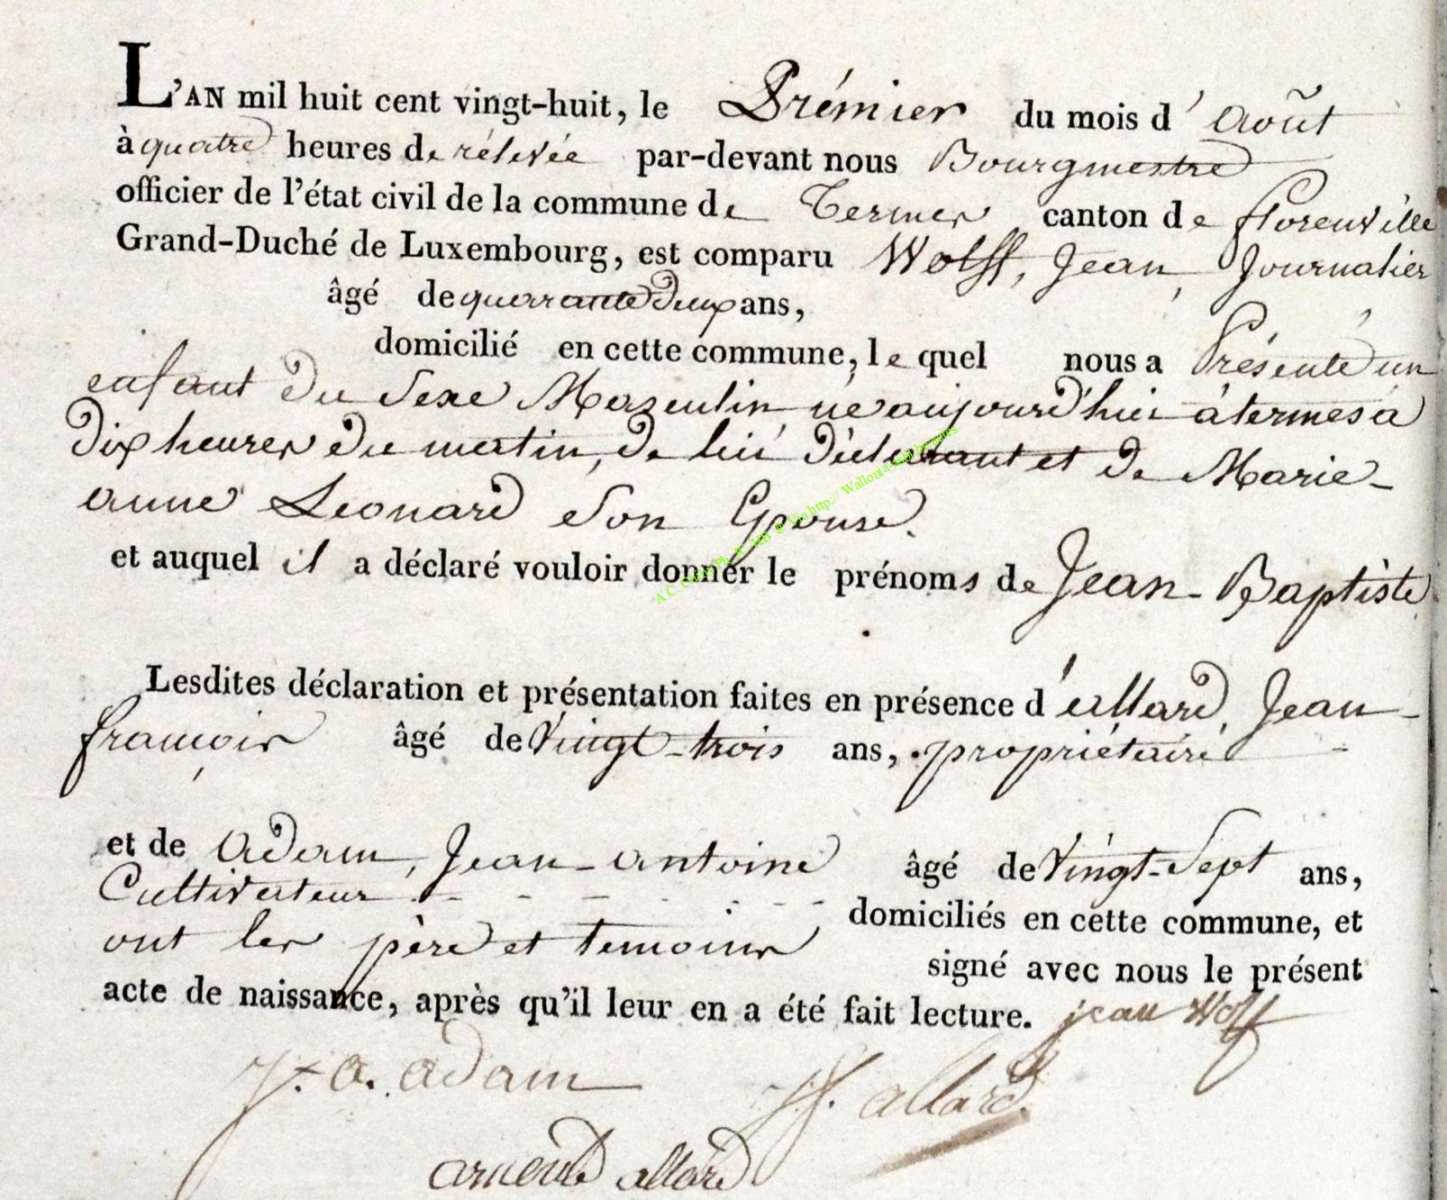 L'AN mil huit cent vingt-huit, le Prémier du mois d' Août
à quatre heures de rélevée par-devant nous Bourgmestre
officier de l'état civil de la commune de Termes canton de florenville
Grand-Duché de Luxembourg, est comparu Wolff, Jean, Journalier
âgé de quarrante deux ans,
domicilié en cette commune, le quel nous a Présenté un
enfant du Sexe Masculin né aujourd'hui à termes à
dix heures du matin, de lui déclarant et de Marie-
anne Leonard Son Epouse.
et auquel il a déclaré vouloir donner le prénoms de Jean-Baptiste.
Lesdites déclaration et présentation faites en présence d'allard, Jean-
françois âgé de Vingt-trois ans, propriétaire
et de adam, Jean-antoine âgé de Vingt-Sept ans,
Cultivateur - - - - - - domiciliés en cette commune, et
ont les père et temoins signé avec nous le présent
acte de naissance, après qu'il leur en a été fait lecture. jean Wolff
J. a. adam Jf. allard.
arnould allard